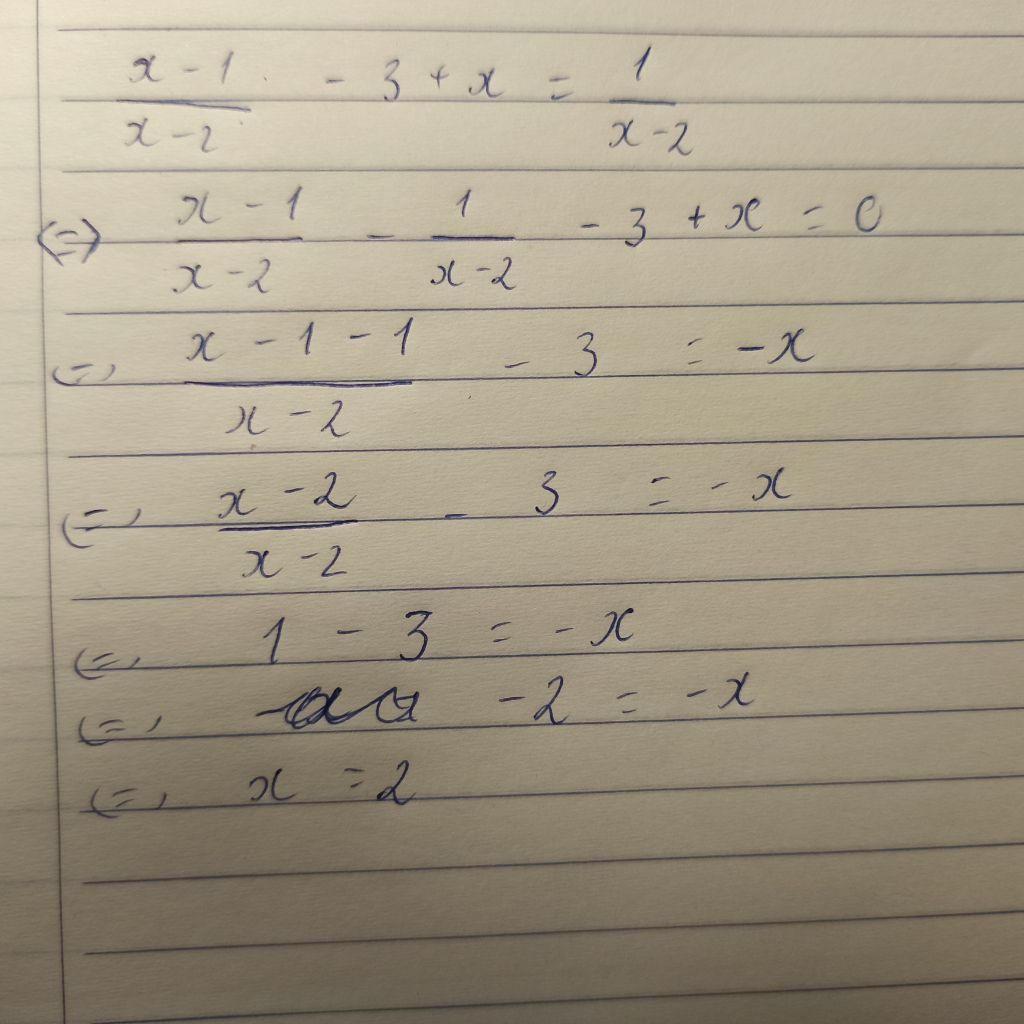 \frac{x-1}{x-2} - 3 + x = \frac{1}{x-2}
⇔ \frac{x-1}{x-2} - \frac{1}{x-2} - 3 + x = 0
⇔ \frac{x-1-1}{x-2} - 3 = -x
⇔ \frac{x-2}{x-2} - 3 = -x
⇔ 1 - 3 = -x
⇔ -2 = -x
⇔ x = 2